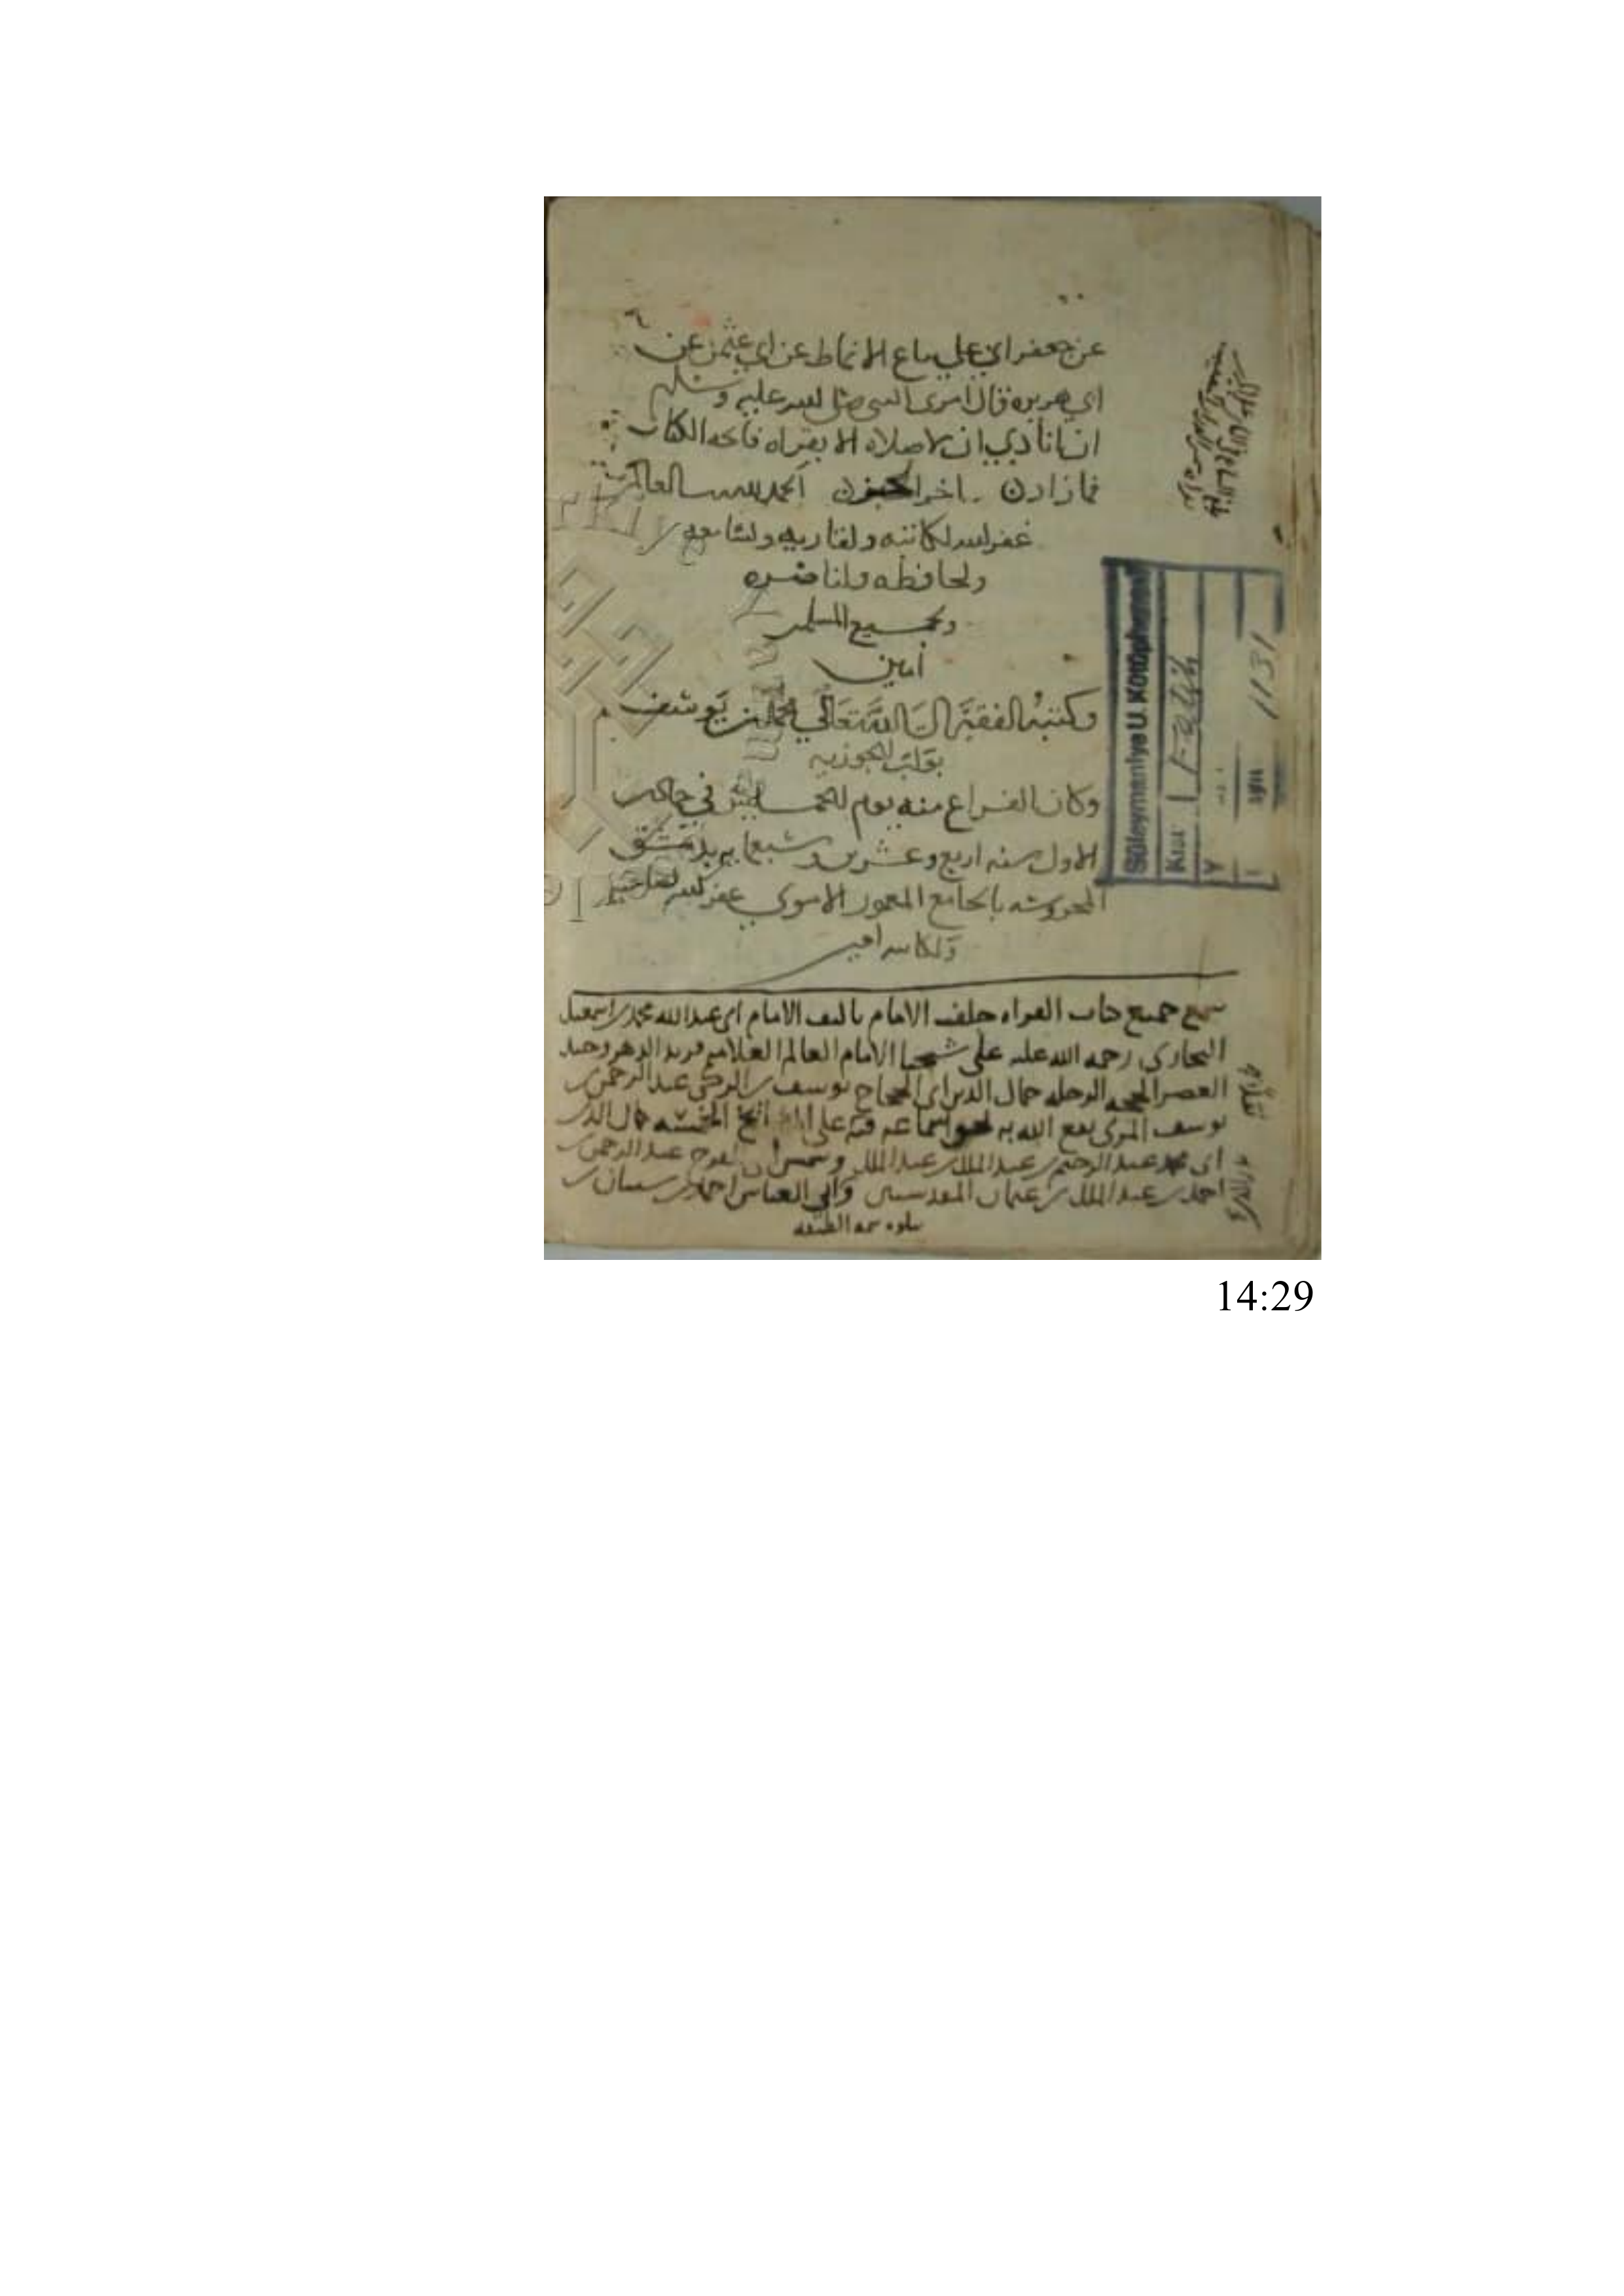 عن جعفر ابي علي بياع الانماط عن ابي عثمن عن
ابي هريرة قال امرني النبي صلى الله عليه وسلم
ان انادي ان لا صلاه الا بقراه فاتحه الكتاب
فما زاد اخر الحمد لله رب العالمين
غفر الله لكاتبه ولقاريه ولسامعه
ولحافظه ولناضره
ولجميع المسلمين
امين
وكتبه الفقير الى الله تعالى محمد بن يوسف
بواب الجوزيه
وكان الفراغ منه يوم الخميس في جمادى
الاول سنه اربع وعشرين وسبعمايه بدمشق
المحروسه بالجامع المعمور الاموي غفر الله لصاحبه
ولكاتبه امين
سمع جميع كتاب القراه خلف الامام تاليف الامام ابي عبد الله محمد بن اسمعيل
البخاري رحمه الله عليه على شيخنا الامام العالم العلامه فريد الدهر وحيد
العصر الحجه الرحله جمال الدين ابي الحجاج يوسف بن الزكي عبد الرحمن بن
يوسف المزي نفع الله به فيه على المشايخ الخمسه كمال الدين
ابي محمد عبد الرحيم بن عبد الملك بن عبد الملك وشمس الدين ابي الفرج عبد الرحمن بن
احمد بن عبد الملك بن عثمان المقدسيين وابي العباس احمد بن شيبان بن
Süleymaniye U. Kütüphanesi
Fatih
1131
14:29